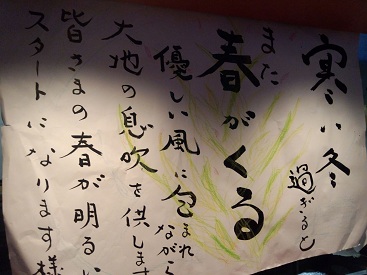 寒い冬
過ぎると
また
春がくる
優しい風に包まれ
ながら
大地の息吹を供します
皆さまの春が明るい
スタートになります様